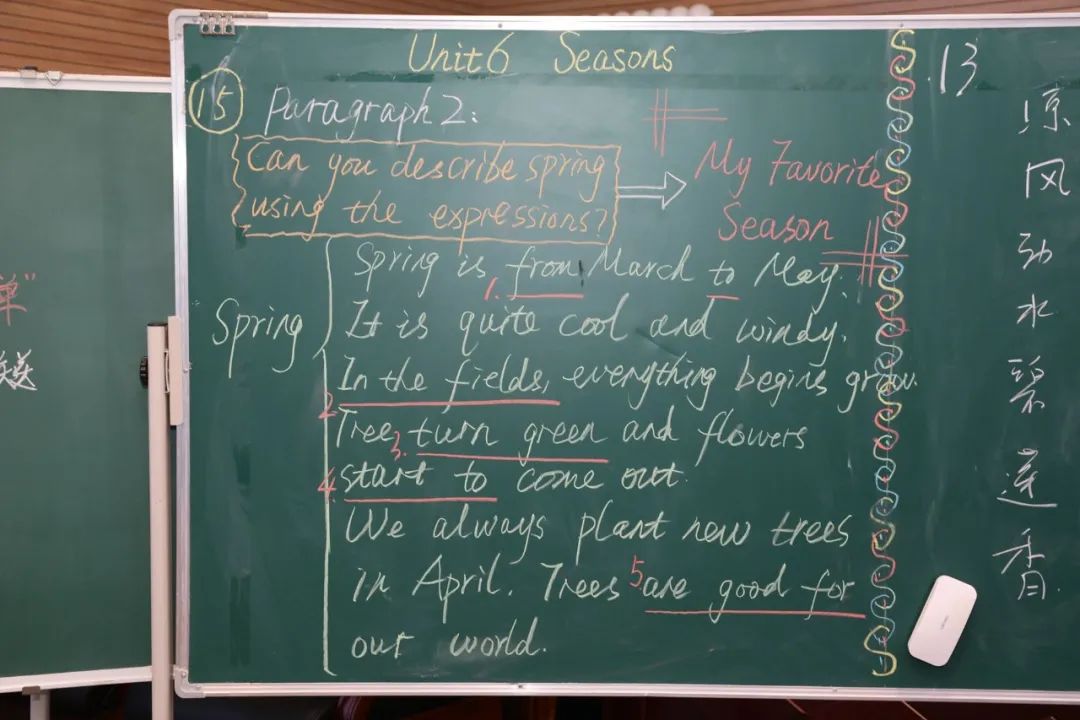 Unit 6 Seasons
15 Paragraph 2:
Can you describe spring
using the expressions?
My Favorite
Season
Spring
Spring is 1. from March to May.
It is quite cool and windy.
2. In the fields, everything begins grow.
Tree 3. turn green and flowers
4. start to come out.
We always plant new trees
in April. Trees 5 are good for
our world.
13
凉风动水碧莲香